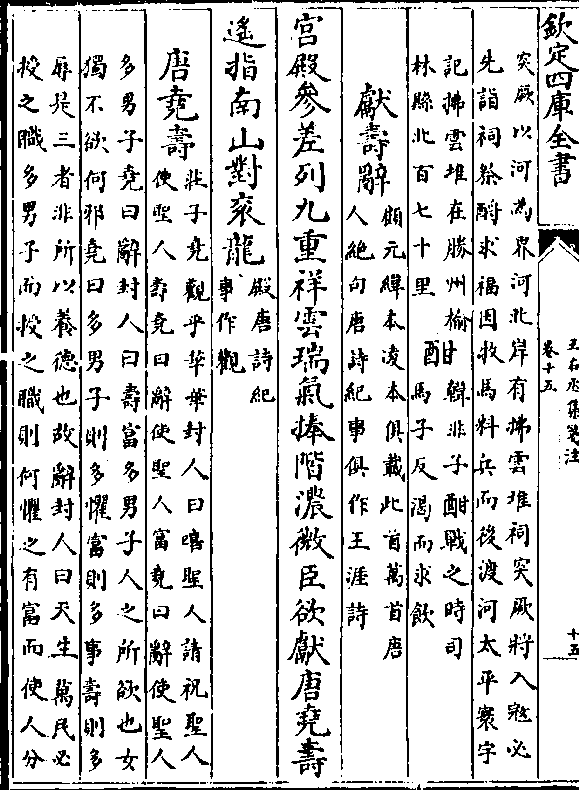 欽定四庫全書
王右丞集箋注
卷十五
十五
突厥以河為界河北岸有拂雲堆祠突厥將入冦必
先詣祠祭酹求福因牧馬料兵而後渡河太平寰宇
記拂雲堆在勝州榆
林縣北百七十里
酣
韓非子酣戰之時司
馬子反渴而求飲
獻壽辭
顧元緯本凌本俱載此首萬首唐
人絶句唐詩紀事俱作王涯詩
宫殿參差列九重祥雲瑞氣捧階濃微臣欲獻唐堯壽
遙指南山對衮龍
殿唐詩紀
事作觀
唐堯壽
莊子堯觀乎華華封人曰嘻聖人請祝聖人
使聖人壽堯曰辭使聖人富堯曰辭使聖人
多男子堯曰辭封人曰壽富多男子人之所欲也女
獨不欲何邪堯曰多男子則多懼富則多事壽則多
辱是三者非所以養德也故辭封人曰天生萬民必
授之職多男子而授之職則何懼之有富而使人分